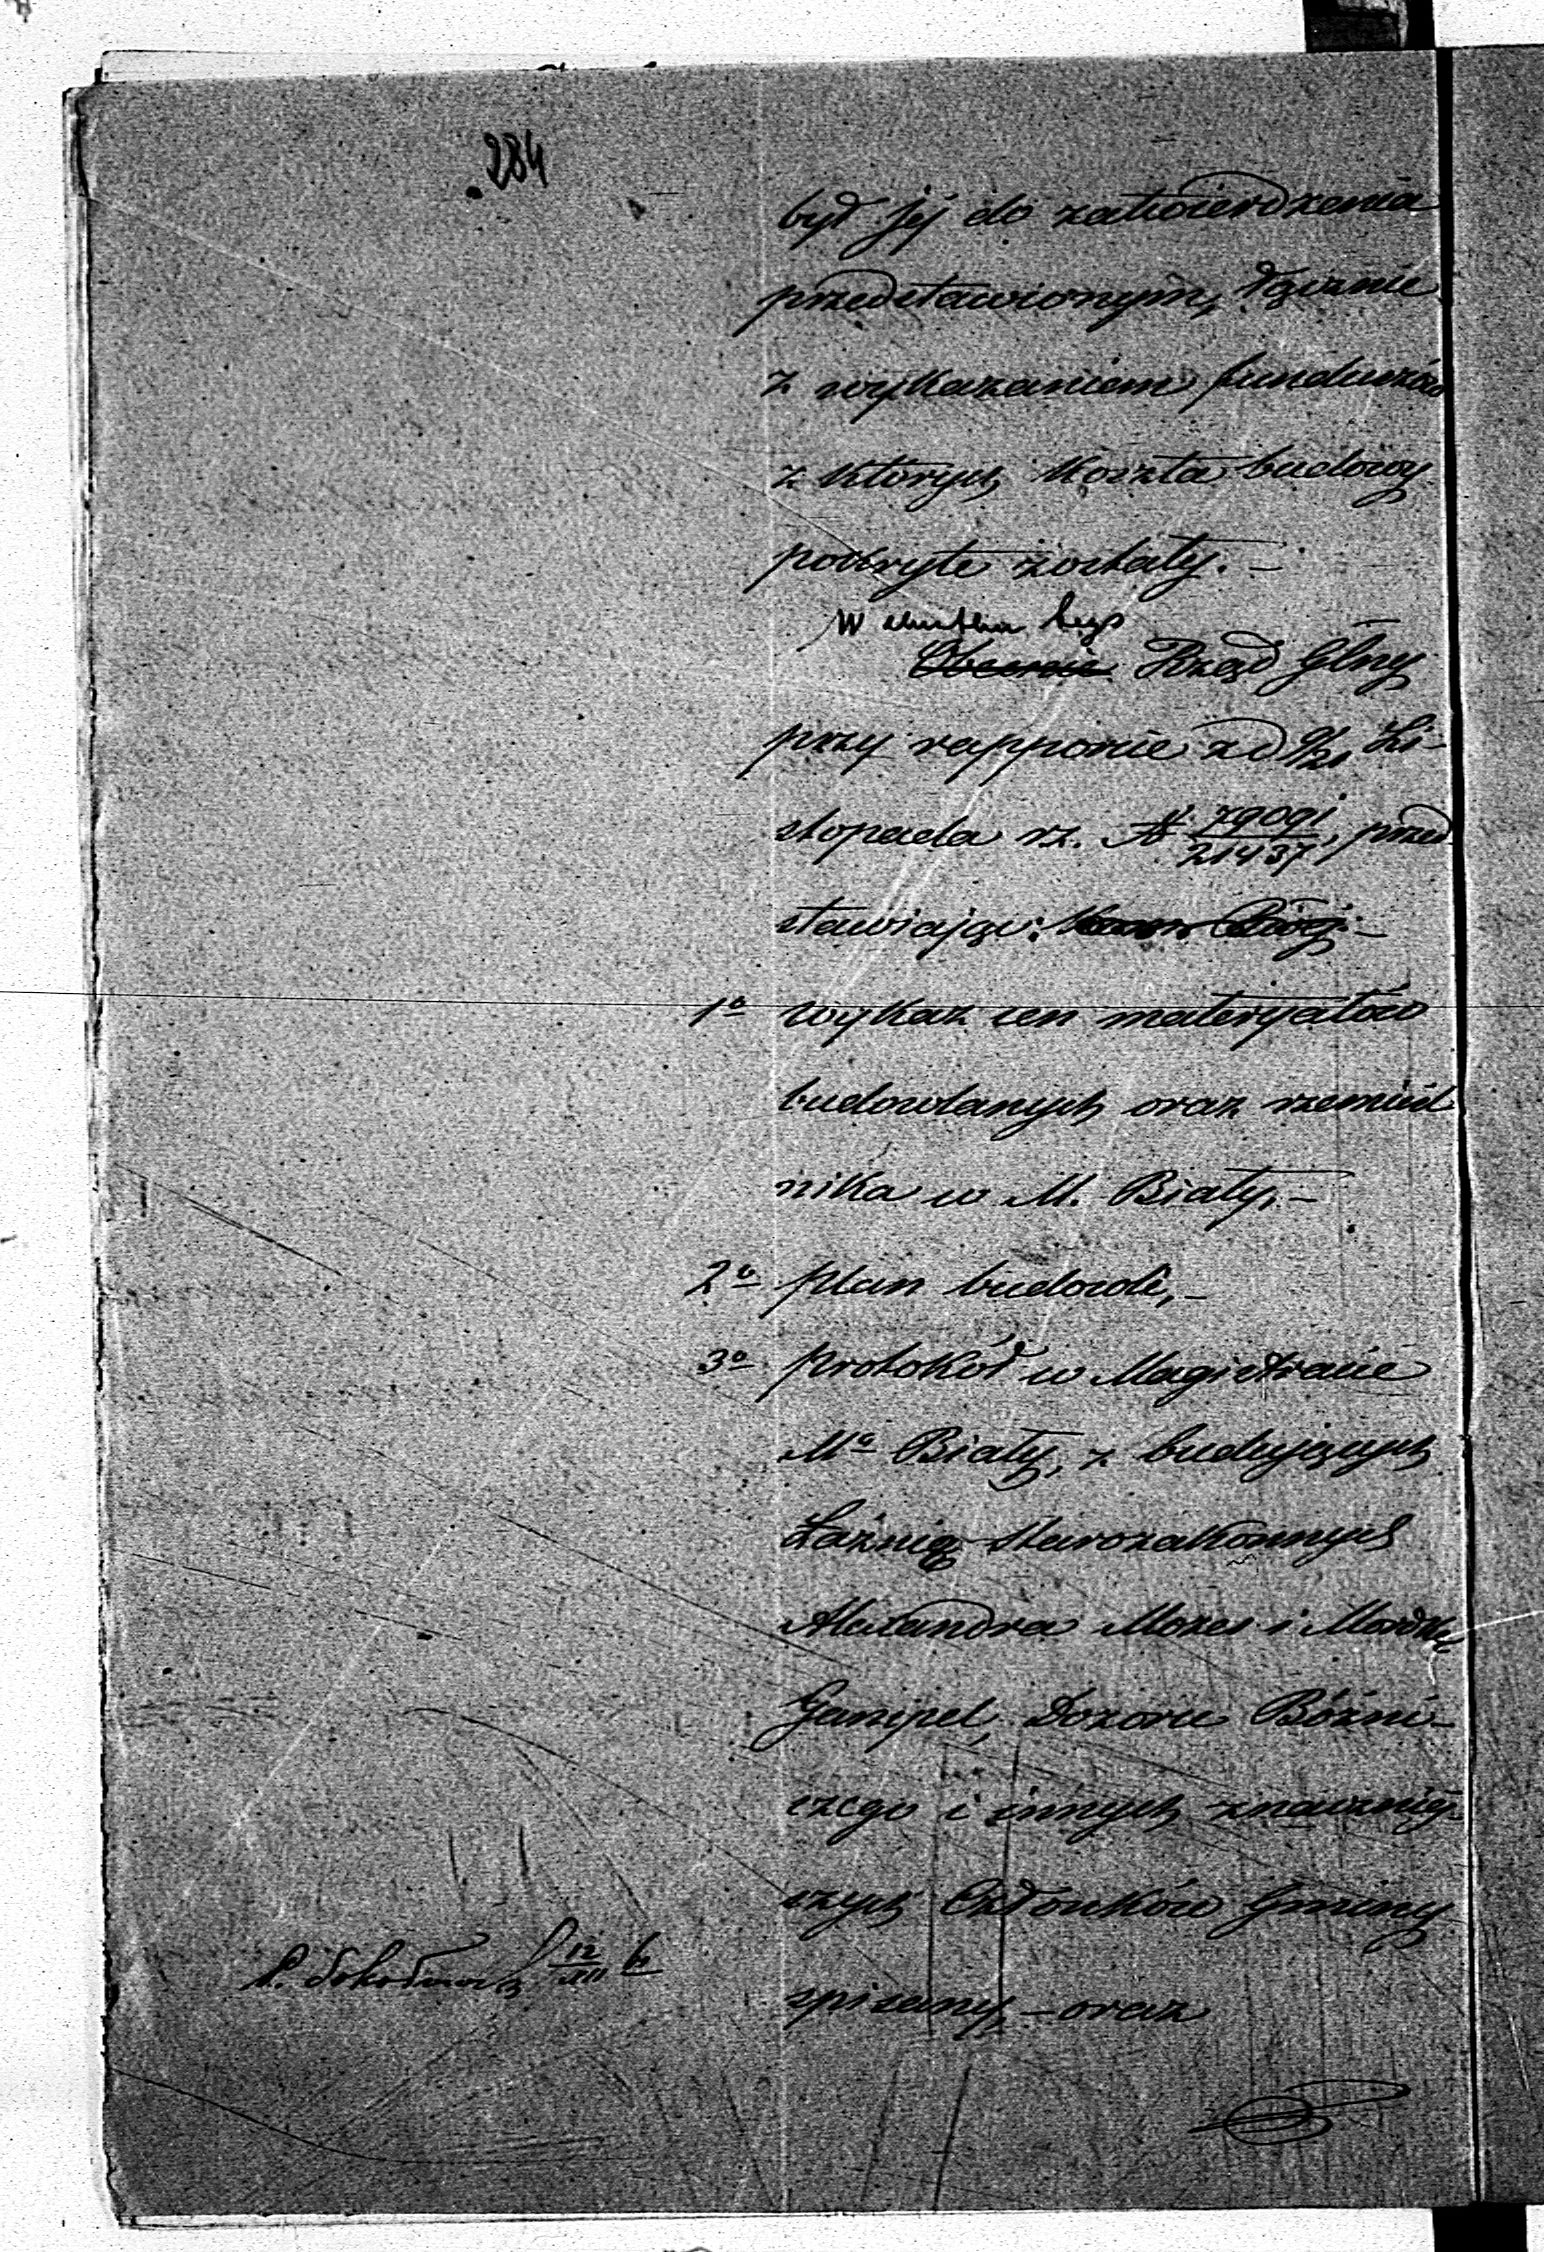 284
był jej do zatwierdzenia
przedstawionym, łącznie
z wykazaniem funduszów
z których koszta budowy
pokryte zostały. —
W skutku tego
Obecnie Rząd Glny
przy rapporcie z d 9/21 Li-
stopada rz. № 79091/21437, przed
stawiając:
1o wykaz cen materyałów
budowlanych oraz rzemieśl
nika w M. Biały, —
2o plan budowli, —
3o protokół w Magistracie
Ma Biały, z budujących
Łaźnię Starozakonnych
Alexandra Mozes i Mordke
Gampel, Dozoru Bóżni-
czego i innych znaczniej-
szych Członków Gminy
spisany, — oraz
12/XII